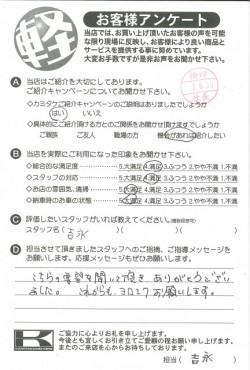 軽
お客様アンケート
当店では、お買い上げ頂いたお客様の声を可能
な限り現場に反映し、お客様により良い商品と
サービスを提供する事に努めています。
大変お手数ですが是非お声をお聞かせ下さい。
A 当店はご紹介を大切にしております。
ご紹介キャンペーンについてお聞かせ下さい
◇カミタケご紹介キャンペーンのご説明はありましたでしょうか
はい いいえ
◇具体的にご紹介頂ける方とのご関係をお聞かせ頂けますでしょうか
ご親族 ご友人 職場の方 機会があれば紹介したい
B 当店を実際にご利用になった印象をお聞かせ下さい。
◇総合的な満足度 5.大満足 4.満足 3.ふつう 2.やや不満 1.不満
◇スタッフの対応 5.大満足 4.満足 3.ふつう 2.やや不満 1.不満
◇お店の雰囲気、清掃 5.大満足 4.満足 3.ふつう 2.やや不満 1.不満
◇納車時のお車の状態 5.大満足 4.満足 3.ふつう 2.やや不満 1.不満
C 評価したいスタッフがいれば教えてください。(複数回答可)
スタッフ名( 吉永 )
D 担当させて頂きましたスタッフへのご指摘、ご指導メッセージを
お願いします。応援メッセージもぜひお願いします。
こちらの要望を聞いて頂き ありがとうござい
ました。 これからも ヨロシクお願いします。
K
ご協力に心よりお礼を申し上げます。
今後とも宜しくお引き立てご愛顧の程お願い申し上げます。
またのご来店を心からお待ちしております。
担当( 吉永 )